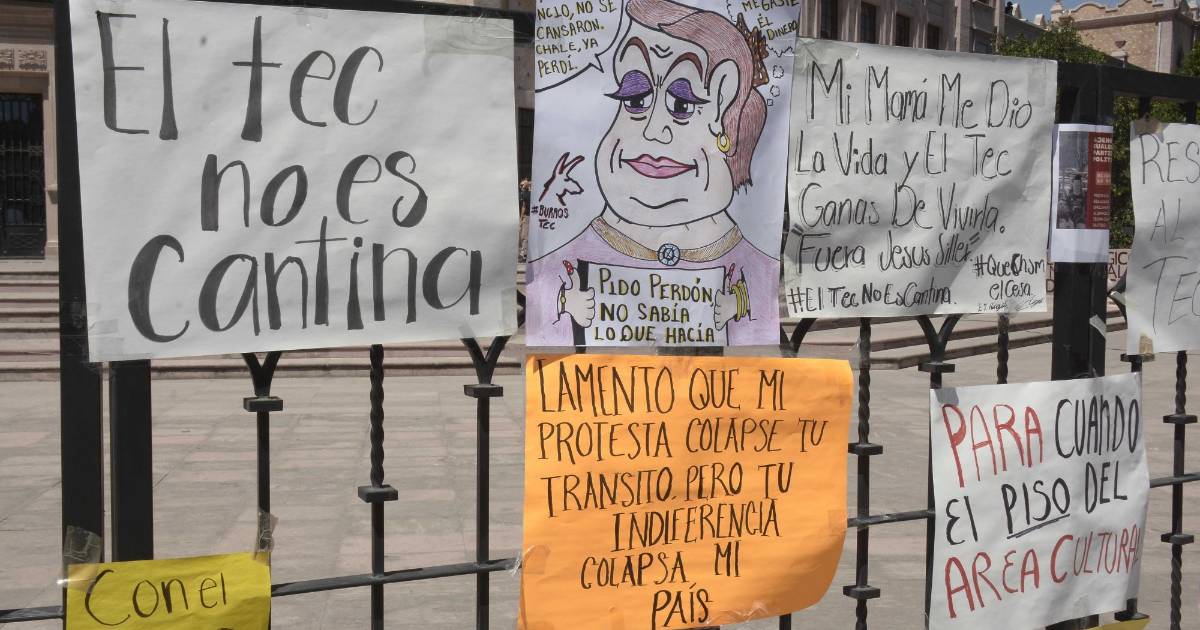 El tec
no es
Cantina
NCIO, NO SE
CANSARON.
CHALE, YA
PERDÍ.
MEGASTE
EL
DINERO
#BURROS
TEC
PIDO PERDÓN
NO SABÍA
LO QUE HACÍA
Mi Mamá Me Dio
La Vida y El Tec
Ganas De Vivirla.
Fuera Jesus Siller
#El Tec No Es Cantina.
RES
AL
TE
LAMENTO QUE MI
PROTESTA COLAPSE TU
TRANSITO, PERO TU
INDIFERENCIA
COLAPSA MI
PAÍS
PARA CUANDO
EL PISO DEL
AREA CULTURAL
Con el